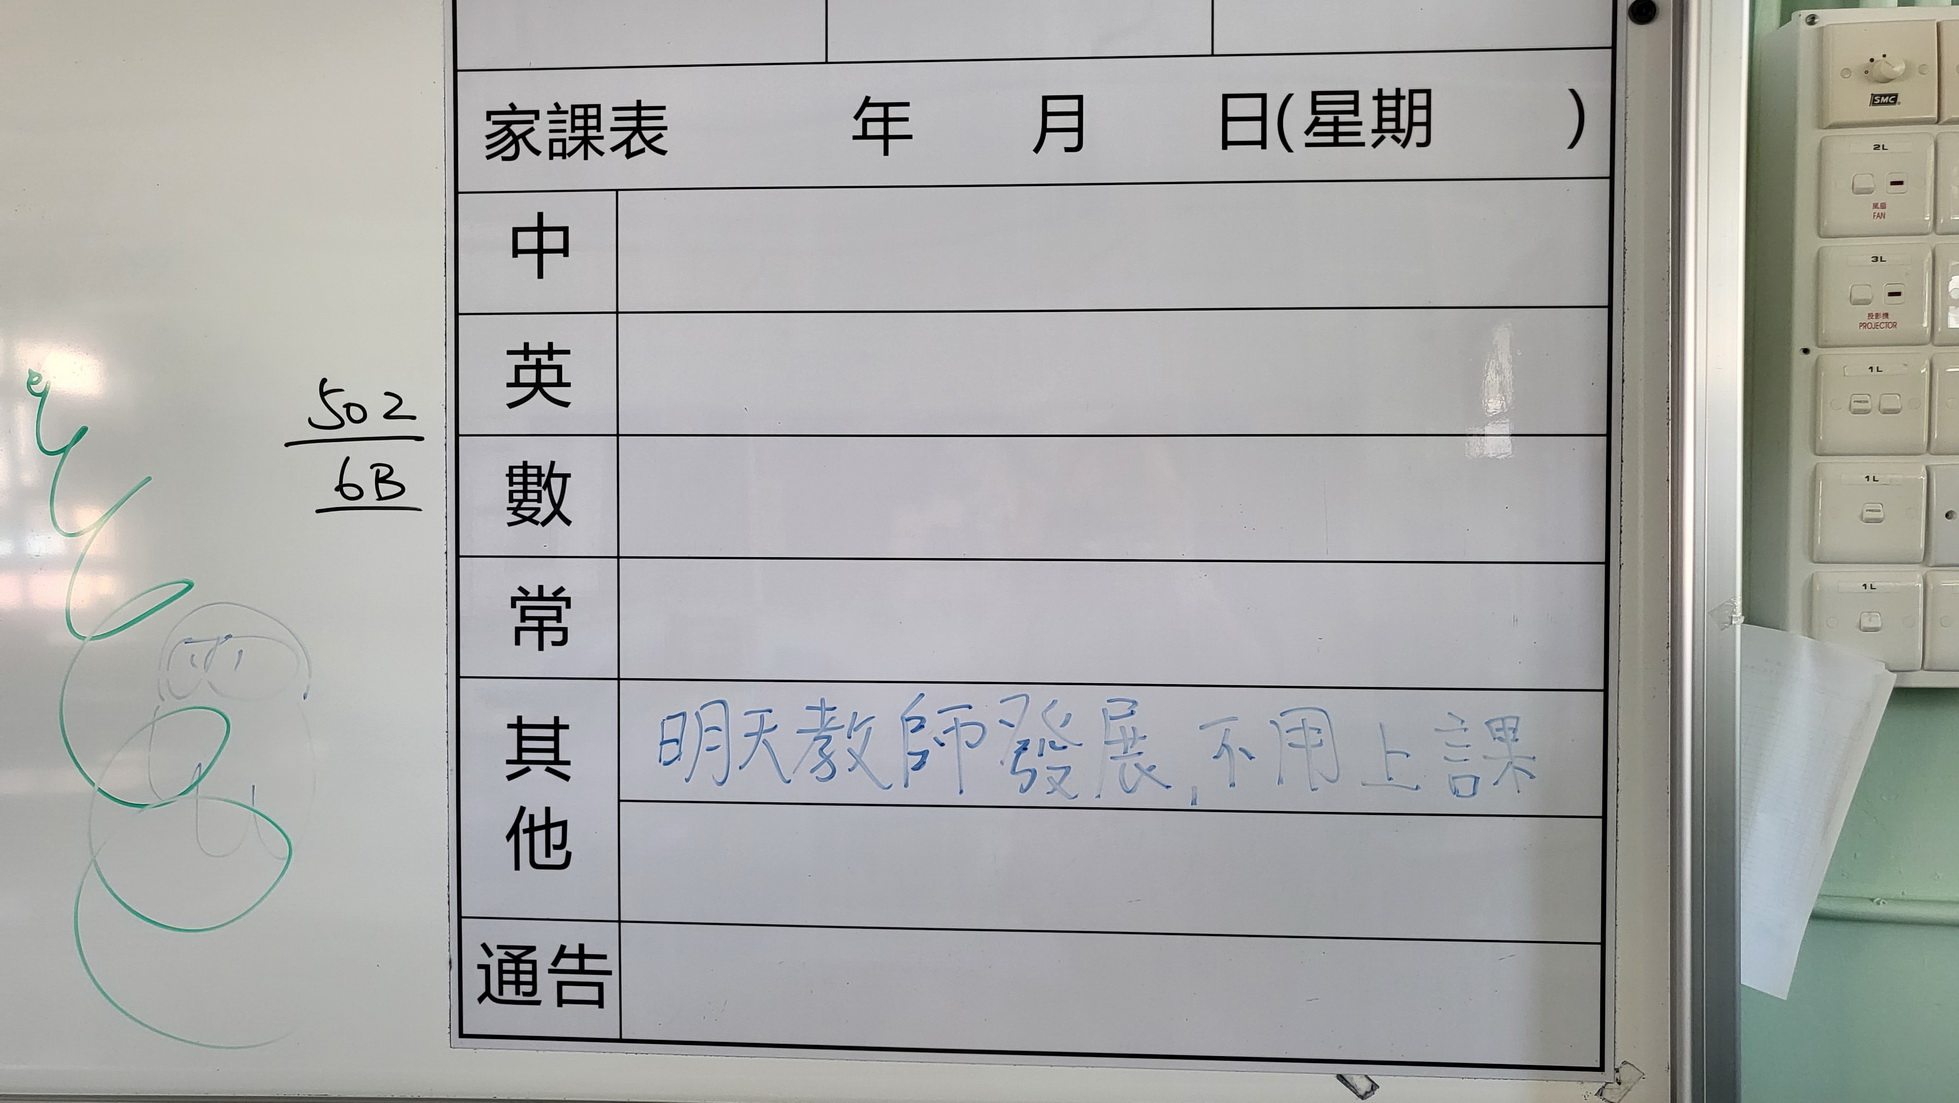 家課表 年 月 日(星期 )
中
英
數
常
其他
明天教師發展,不用上課
通告
502
6B
SMC
2L
風扇
FAN
3L
投影機
PROJECTOR
1L
1L
1L